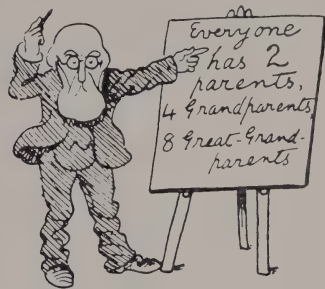 Everyone
has 2
parents,
4 Grandparents,
8 Great-Grand-
parents